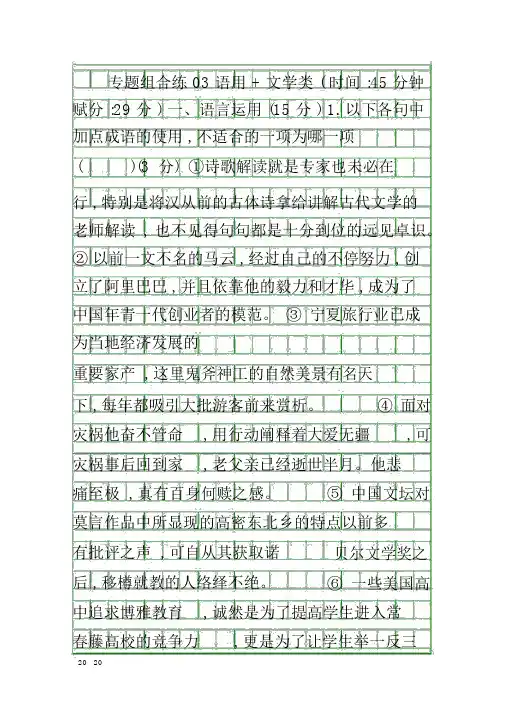 专题组合练 03 语用 + 文学类 ( 时间 :45 分钟
赋分 :29 分 ) 一、语言运用 (15 分 ) 1. 以下各句中
加点成语的使用 , 不适合的一项为哪一项
( )(3 分) ①诗歌解读就是专家也未必在
行 , 特别是将汉从前的古体诗拿给讲解古代文学的
老师解读 , 也不见得句句都是十分到位的远见卓识。
② 以前一文不名的马云 , 经过自己的不停努力 , 创
立了阿里巴巴 , 并且依靠他的毅力和才华 , 成为了
中国年青一代创业者的模范。 ③ 宁夏旅行业已成
为当地经济发展的
重要家产 , 这里鬼斧神工的自然美景有名天
下 , 每年都吸引大批游客前来赏析。 ④ 面对
灾祸他奋不管命 , 用行动阐释着大爱无疆 , 可
灾祸事后回到家 , 老父亲已经逝世半月。他悲
痛至极 , 真有百身何赎之感。 ⑤ 中国文坛对
莫言作品中所显现的高密东北乡的特点以前多
有批评之声 , 可自从其获取诺 贝尔文学奖之
后 , 移樽就教的人络绎不绝。 ⑥ 一些美国高
中追求博雅教育 , 诚然是为了提高学生进入常
春藤高校的竞争力 , 更是为了让学生举一反三
20 20